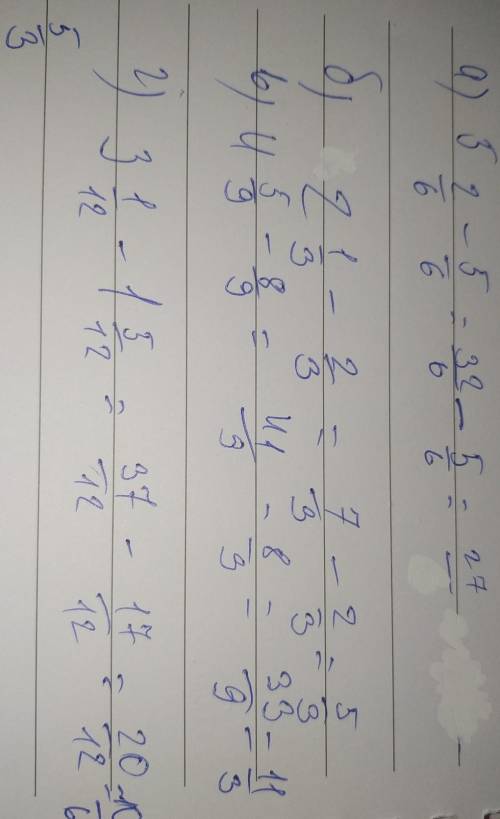 а) 5 2/6 - 5/6 = 32/6 - 5/6 = 27/
б) 2 1/3 - 2/3 = 7/3 - 2/3 = 5/3
в) 4 5/9 - 8/9 = 41/9 - 8/9 = 33/9 = 11/3
г) 3 1/12 - 1 5/12 = 37/12 - 17/12 = 20/12 = 10/6
5/3